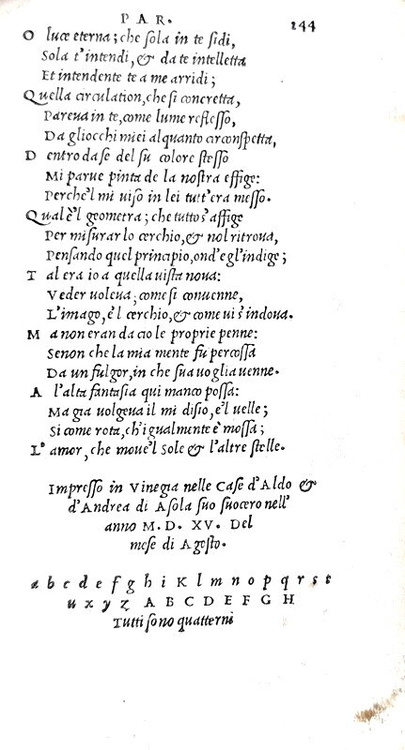 PAR. 244
O luce eterna; che sola in te sidi,
Sola t'intendi, & da te intelletta
Et intendente te a me arridi;
Quella circulation, che si concretta,
Pareva in te, come lume reflesso,
Da gliocchi miei alquanto circonspetta,
Dentro da se del su colore stesso
Mi parve pinta de la nostra effige:
Perche'l mi viso in lei tutt'era messo.
Qual è'l geometra; che tutto s'affige
Per misurar lo cerchio, & nol ritrova,
Pensando quel principio, ond'egl'indige;
Tal era io a quella vista nova:
Veder voleva; come si convenne,
L'imago, è l cerchio, & come vi s'indova.
Ma non eran da cio le proprie penne:
Senon che la mia mente fu percossa
Da un fulgor, in che sua voglia venne.
A l'alta fantasia qui manco possa:
Ma gia volgeva il mi disio, e'l velle;
Si come rota, ch'igualmente è mossa;
L'amor, che move'l Sole & l'altre stelle.
Impresso in Vinegia nelle Case d'Aldo &
d'Andrea di Asola suo suocero nell'
anno M. D. XV. Del
mese di Agosto.
a b c d e f g h i K l m n o p q r s t
u x y z A B C D E F G H
Tutti sono quatterni